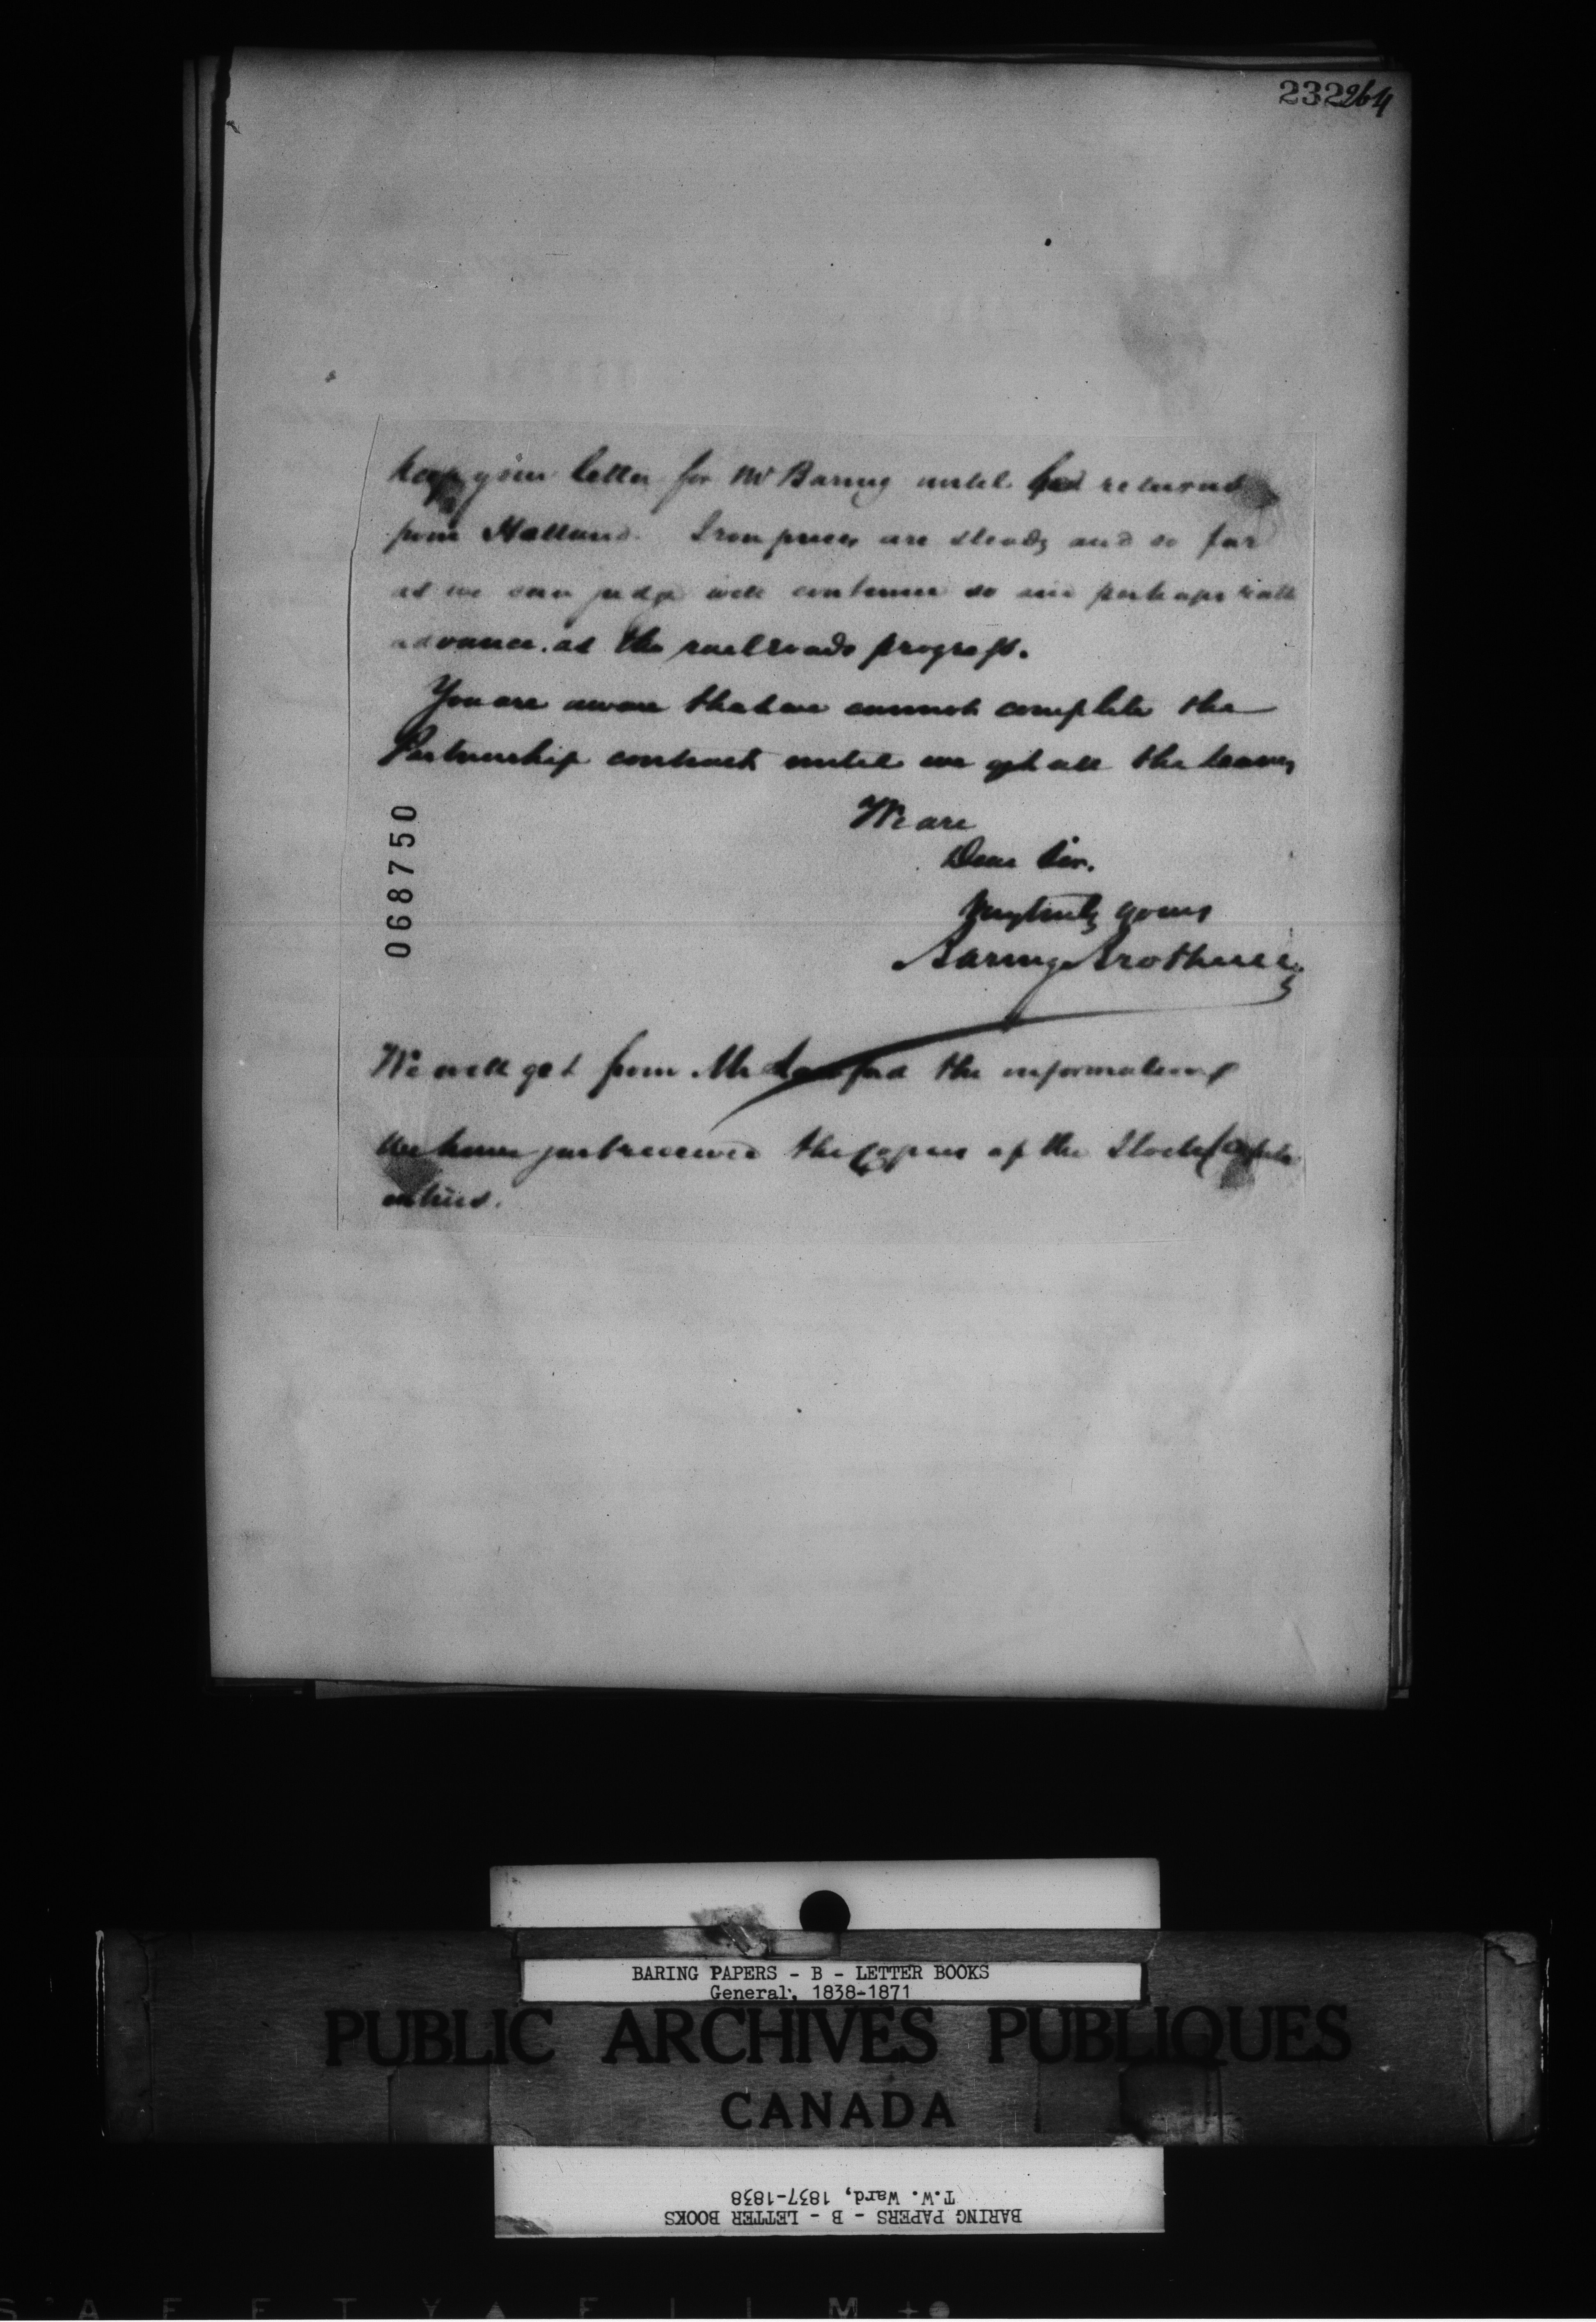 232264
keep your letter for Mr Baring until his return
from Holland. Iron prices are steady and so far
as we can judge will continue so and perhaps
advance as the railroads progress.
You are aware that we cannot complete the
Partnership contract until we get all the
We are
Dear Sir.
Very truly yours
Baring Brothers &
068750
We will get from Mr the information
We have just received the copies of the Stock
entries.
BARING PAPERS - B - LETTER BOOKS
General, 1838-1871
PUBLIC ARCHIVES PUBLIQUES
CANADA
BARING PAPERS - B - LETTER BOOKS
T.W. Ward, 1837-1838
SAFETY FILM